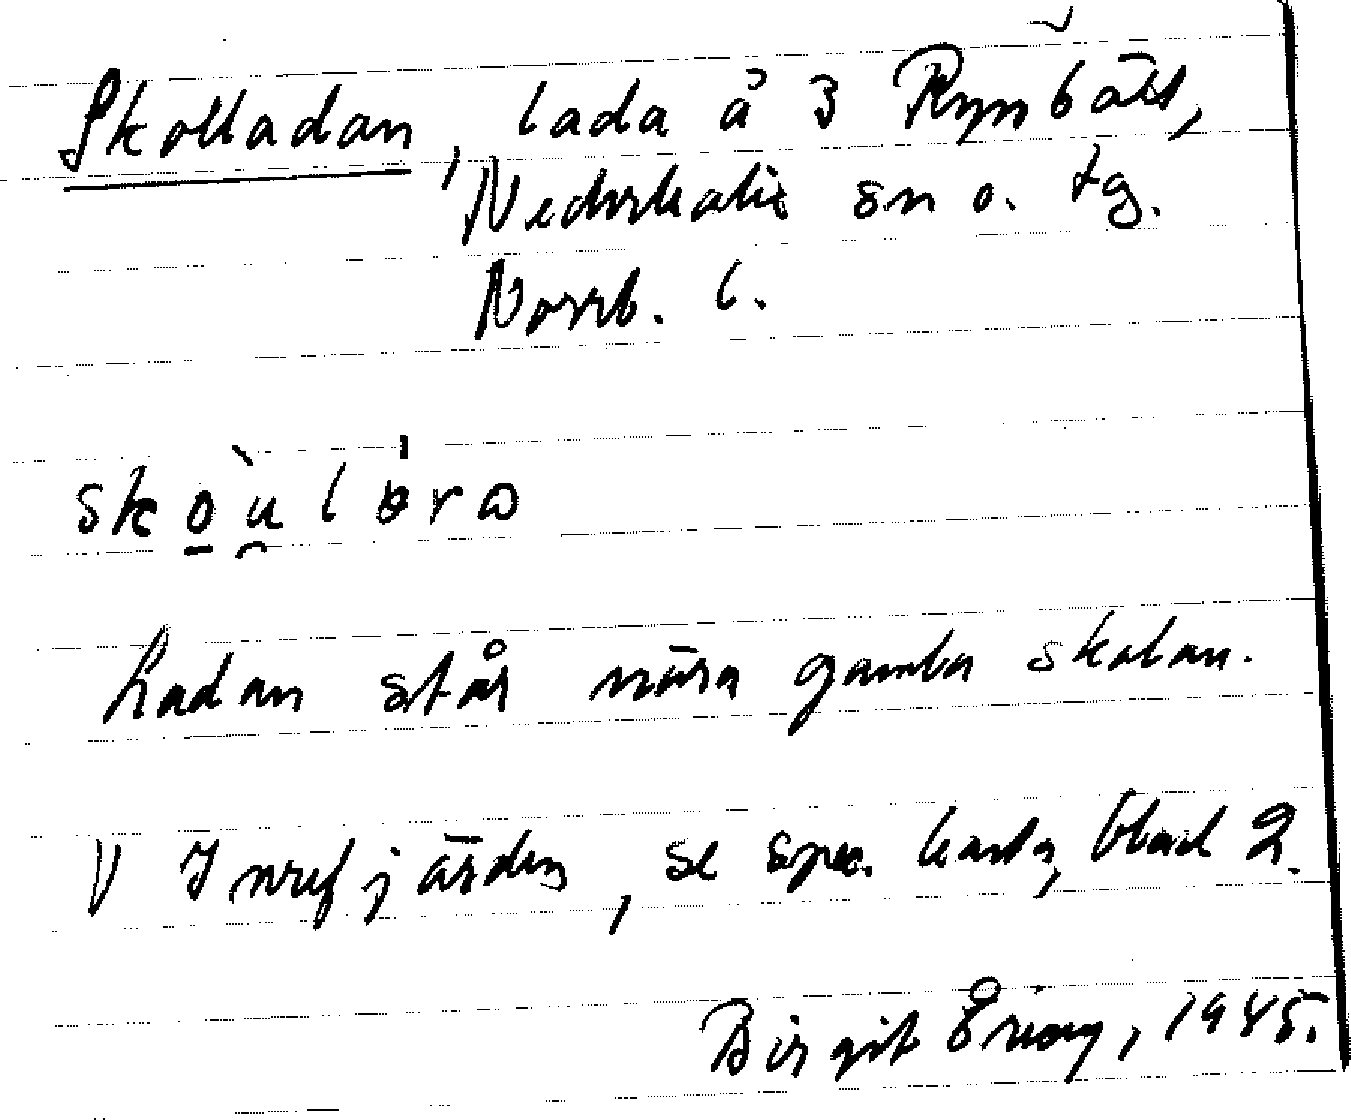 Skolladan, lada å 3 Rynbäck,
Nederkalix sn o. tg.
Norrb. l.
skòu̯lɵrɷ
Ladan står nära gamla skolan.
V Inrefjärden, se spec. karta, blad 2.
Birgit 1945.